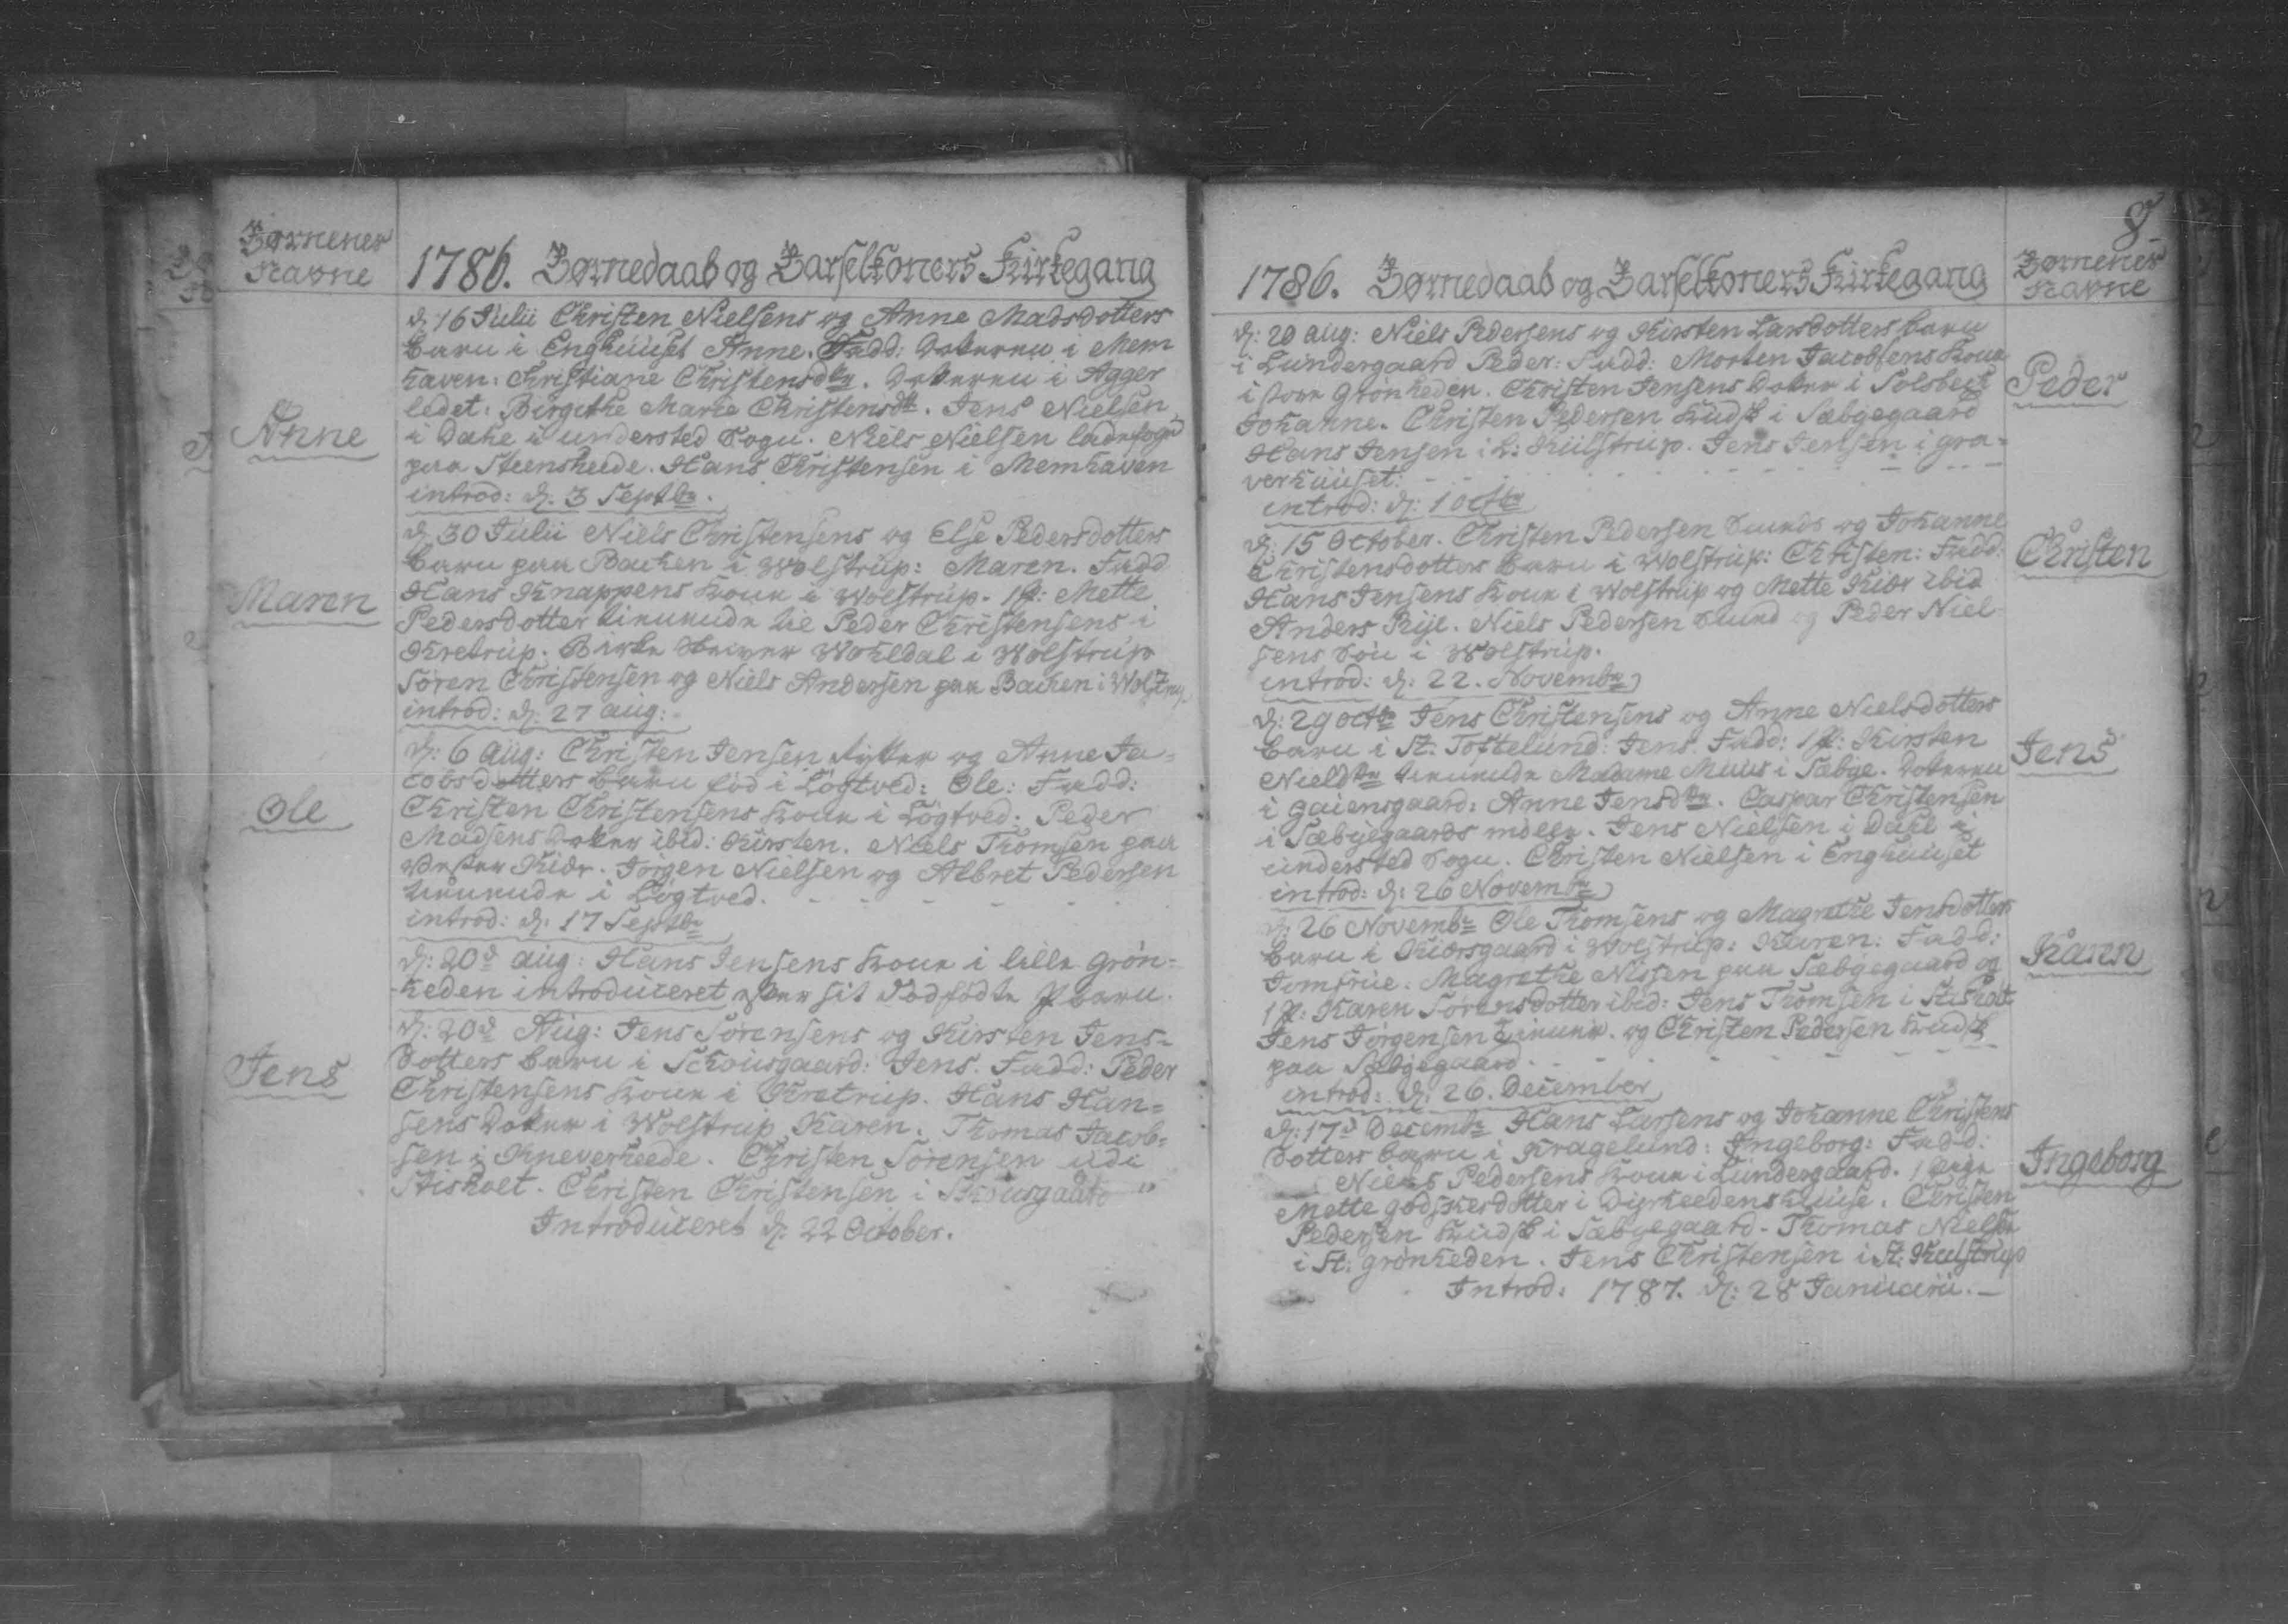 Børnenes
Navne
1786. Børnedaab og Barselkoners Kirkegang
d: 16 Julii Christen Nielsens og Anne Madsdotters
Barn i Enghuuset Anne. Fadd: Datteren i Mem
haven: Christiane Christensdtr. Datteren i Agger
ledet: Birgithe Marie Christensdtr. Jens Nielsen
Anne
i Dahl i understed Sogn. Niels Nielsen ladefogd
paa Steensheede. Hans Christensen i Memhaven
introd: d. 3 Septbr.
d: 30 Julii Niels Christensens og Else Pedersdotters
barn paa Bachen i Wolstrup: Maren. Fadd
Maren
Hans Knappens Kone i Wolstrup. 1 p: Mette
Pedersdotter tienende hos Peder Christensens i
Kretrup. Birke skriver Wohldal i Wolstrup
Søren Christensen og Niels Andersen paa Bachen i Wolstrup.
introd: d. 27 aug:
d: 6 aug: Christen Jensen Rytter og Anne Ja=
cobsdotters barn fød i Løgtved: Ole: Fadd:
Ole
Christen Christensens Kone i Løgtved: Peder
Madsens Datter ibid: Kirsten. Niels Thomsen paa
Vester Kiær. Jørgen Nielsen og Albret Pedersen
tienende i Løgtved.
introd: d: 17 Septbr
d: 20d aug: Hans Jensens Kone i lille Grøn-
heden introduceret efter sit Dødfødte pbarn.
d: 20d Aug: Jens Sørensens og Kirsten Jens=
dotters barn i Schousgaard: Jens. Fadd: Peder
Jens
Christensens Kone i Kretrup. Hans Han=
sens Datter i Wolstrup Karen. Thomas Jacob=
sen i Kneverheede. Christen Sørensen udi
Stisholt. Christen Christensen i Skousgaard
Introduceret d: 22 October.
8
1786. Børnedaab og Barselkoners Kirkegang
Børnenes
Navne
d: 20 aug: Niels Pedersens og Kirsten Larsdotters barn
i Lundergaard Peder: Fadd: Morten Jacobsens Kone
Peder
i store Grønheden. Christen Jensens Datter i Solsbek
Johanne. Christen Pedersen Kudsk i Sæbygegaard
Hans Jensen i L: Kulstrup. Jens Jensen i gra=
verhuuset:
introd: d: 1 octbr
d: 15 October. Christen Pedersen Lunds og Johanne
Christensdotters barn i Wolstrup: Christen: Fadd:
Christen
Hans Jensens Kone i Wolstrup og Mette Kiær ibid
Anders Riil. Niels Pedersen Lund og Peder Niel
sens Søn i Wolstrup.
introd: d: 22. Novembr
d: 29 octbr Jens Christensens og Anne Nielsdotters
barn i St. Toftelund: Jens. Fadd: 1 p: Kirsten
Jens
Nielsdtr tienende Madame Muus i Sæbye. Datteren
i Gaiensgaard: Anne Jensdtr. Caspar Christensen
i Sæbyegaards mølle. Jens Nielsen i Dahl i
understed Sogn. Christen Nielsen i Enghuuset
introd: d: 26 Novembr
d: 26 Novembr Ole Thomsens og Magrethe Jensdotters
barn i Kiærsgaard i Wolstrup: Karen: Fadd:
Karen
Jomfrue. Magrethe Nissen paa Sæbygegaard og
1 p: Karen Sørensdotter ibid: Jens Thomsen i Stisholt
Jens Jørgensen tienere. og Christen Pedersen Kudsk
paa Sæbygegaard.
introd: d: 26. December
d: 17d Decembr Hans Larsens og Johanne Christens
dotters barn i Kragelund: Ingeborg: Fadd:
Niels Pedersens Kone i Lundergaard. 1 pige
Ingeborg
Mette Godskesdotter i Dyrheedens huuse. Christen
Pedersen Kudsk i Sæbyegaard. Thomas Nielsen
i St: grønheden. Jens Christensen i St: Kulstrup
Introd: 1787. d: 28 Januarii.